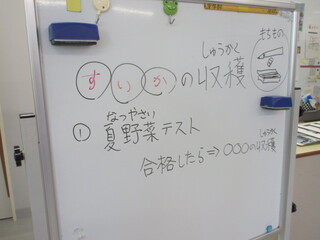 しゅうかく
すいかの収穫
もちもの
なつやさい
① 夏野菜テスト
しゅうかく
合格したら⇒〇〇〇の収穫